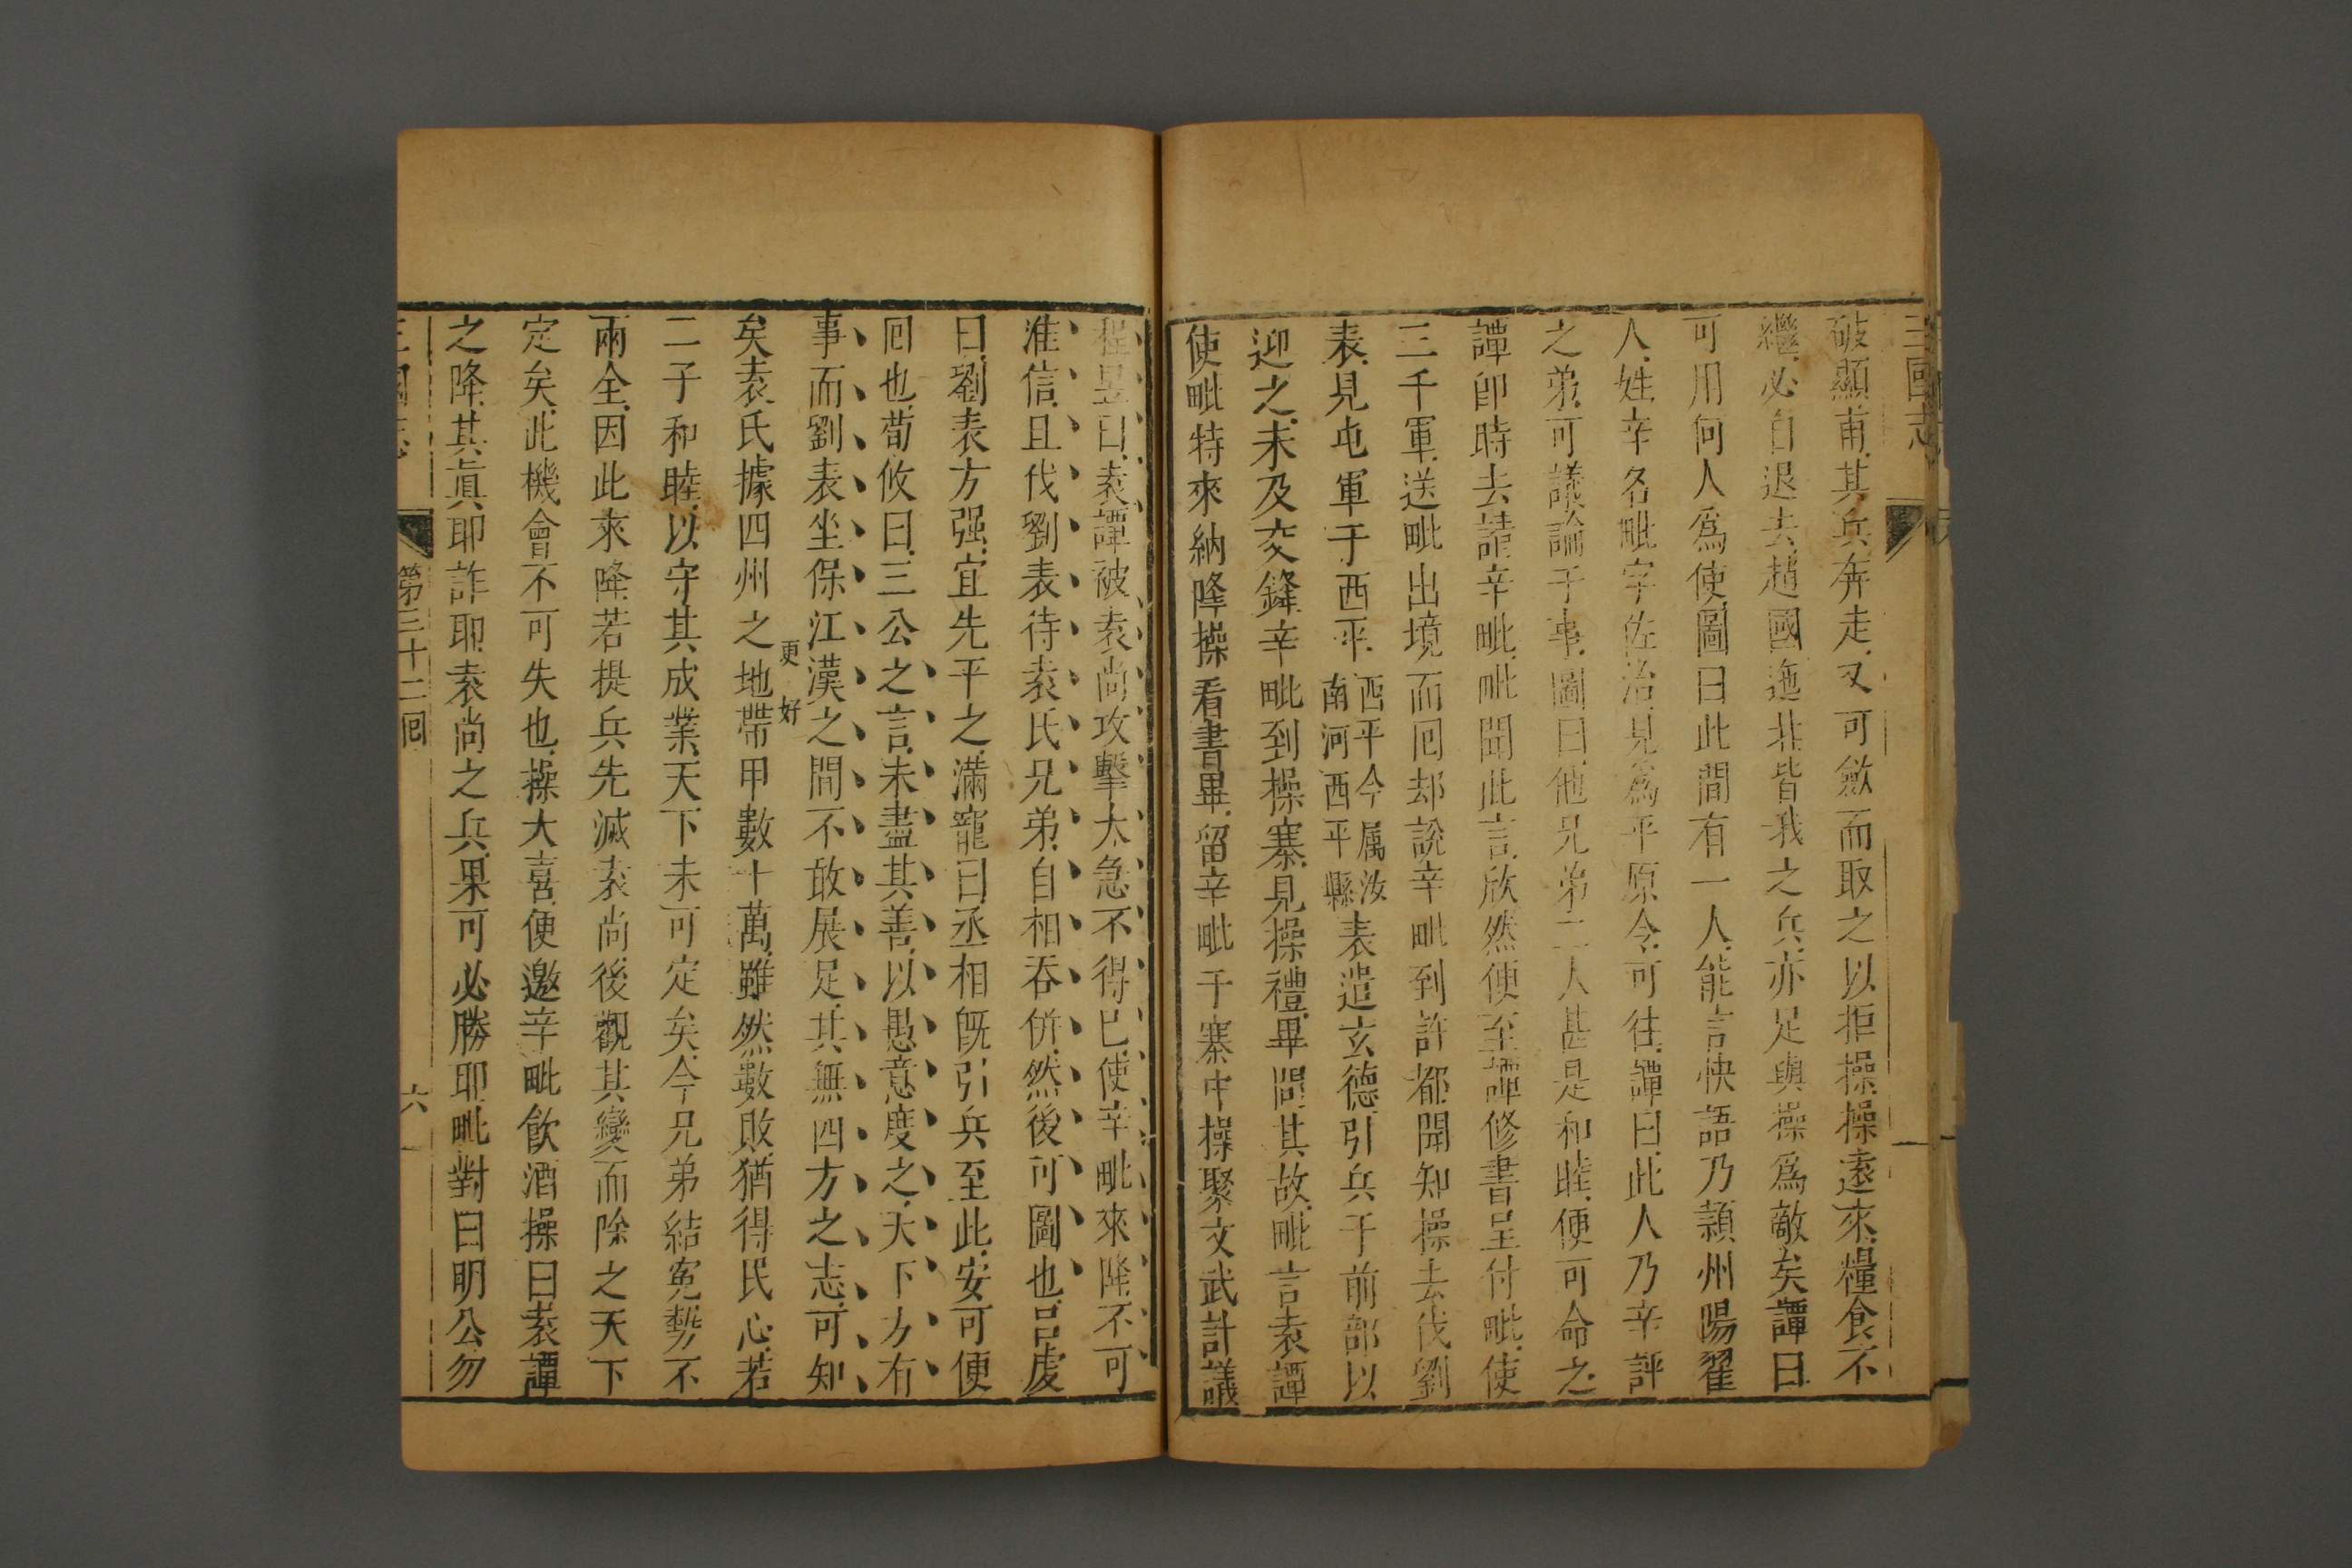 三國志
破顯甫其兵奔走又可斂而取之以拒操操遠來糧食不
繼必自退去趙國迤北皆我之兵亦足與操爲敵矣譚曰
可用何人爲使圖曰此間有一人能言快語乃潁州陽翟
人姓辛名毗字佐治見爲平原令可往譚曰此人乃辛評
之弟可議論于事圖曰他兄弟二人甚是和睦便可命之
譚卽時去請辛毗毗聞此言欣然便至譚修書呈付毗使
三千軍送毗出境而囘却說辛毗到許都聞知操去伐劉
表見屯軍于西平西平今属汝南河西平縣表遣玄德引兵于前部以
迎之未及交鋒辛毗到操寨見操禮畢問其故毗言袁譚
使毗特來納降操看書畢留辛毗于寨中操聚文武計議
程昱曰袁譚被袁尚攻擊太急不得已使辛毗來降不可
准信且伐劉表待袁氏兄弟自相吞併然後可圖也吕虔
曰劉表方强宜先平之滿寵曰丞相旣引兵至此安可便
囘也荀攸曰三公之言未盡其善以愚意度之天下方有
事而劉表坐保江漢之間不敢展足其無四方之志可知
更好
矣袁氏據四州之地帶甲數十萬雖然數敗猶得民心若
二子和睦以守其成業天下未可定矣今兄弟結寃勢不
兩全因此來降若提兵先滅袁尚後觀其變而除之天下
定矣此機會不可失也操大喜便邀辛毗飲酒操曰袁譚
之降其眞耶詐耶袁尚之兵果可必勝耶毗對曰明公勿
三國志 第三十二囘 六